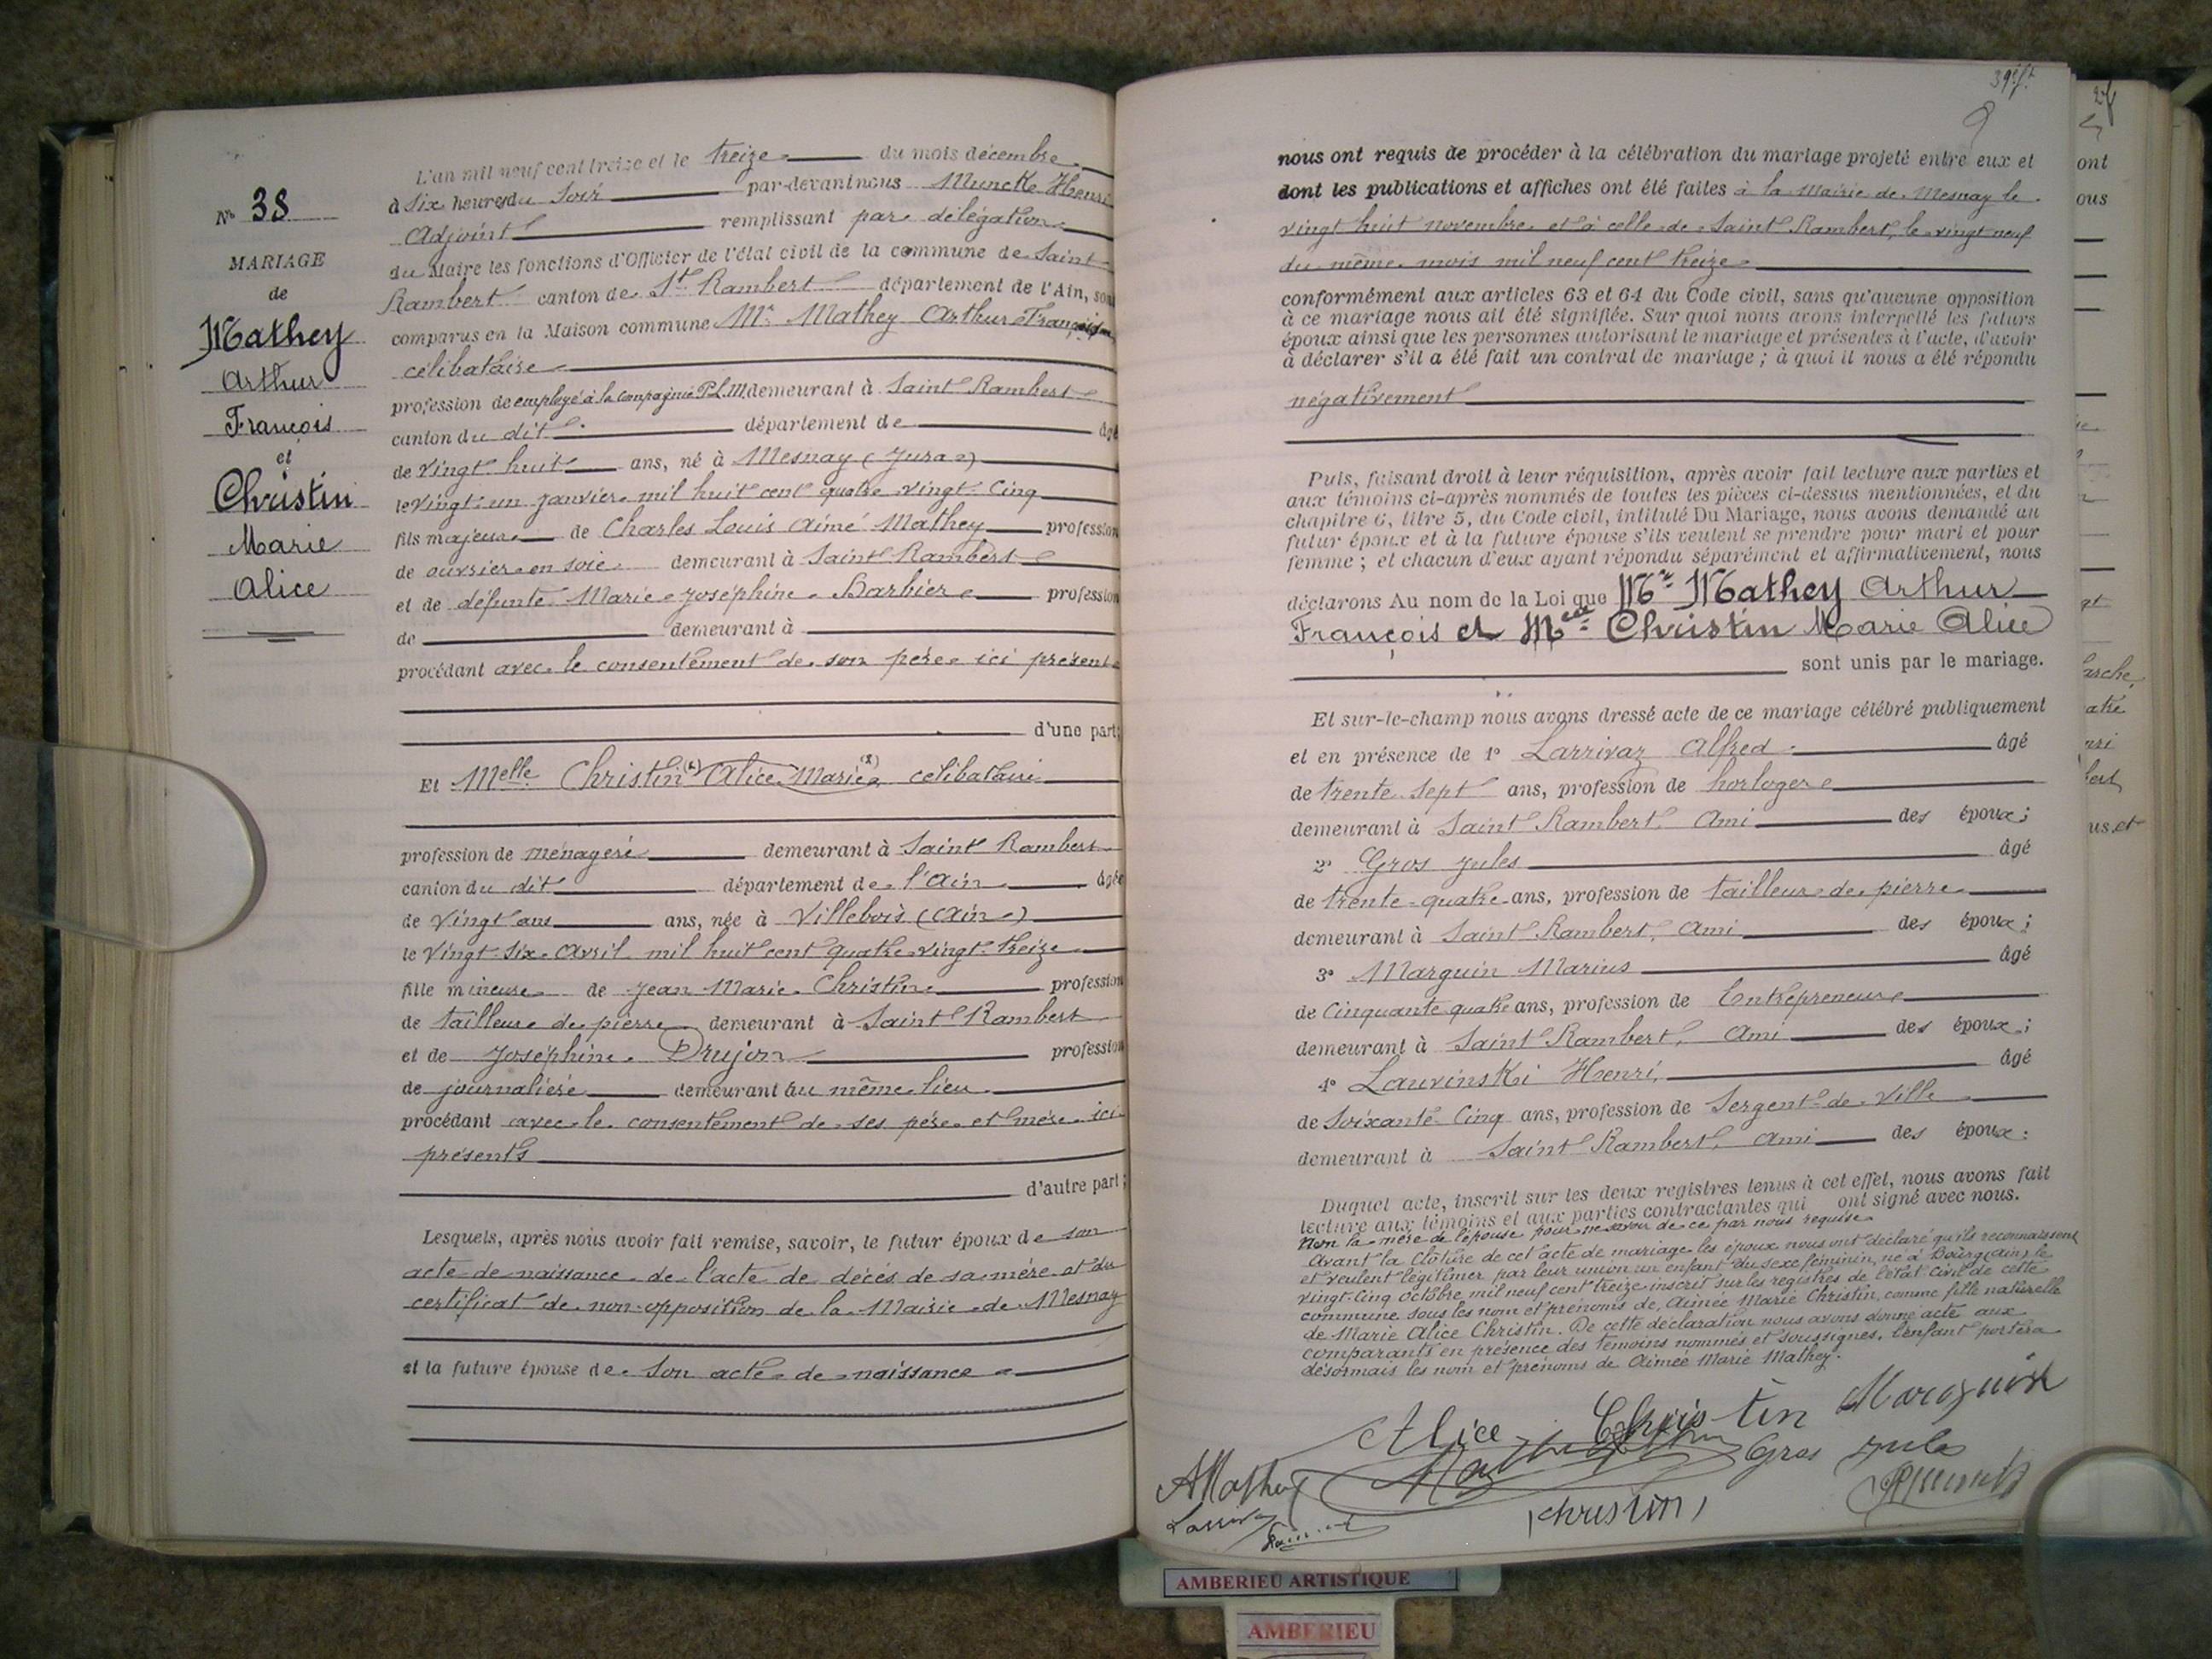 Nº 38
MARIAGE
de
Mathey
Arthur
François
et
Christin
Marie
Alice
L'an mil neuf cent treize et le treize du mois décembre
à Six heures du Soir par-devant nous Muncke Henri
Adjoint remplissant par délégation
du Maire les fonctions d'Officier de l'état civil de la commune de Saint
Rambert canton de St Rambert département de l'Ain, sont
comparus en la Maison commune Mr Mathey Arthur François
célibataire
profession de employé à la Compagnie P.L.M. demeurant à Saint Rambert
canton du dit département de âgé
de Vingt huit ans, né à Mesnay (Jura)
le Vingt un janvier mil huit cent quatre vingt Cinq
fils majeur de Charles Louis Aimé Mathey profession
de ouvrier en soie demeurant à Saint Rambert
et de défunte Marie Joséphine Barbier profession
de demeurant à
procédant avec le consentement de son père ici présent
d'une part;
Et Melle Christin Alice Marie célibataire
profession de ménagère demeurant à Saint Rambert
canton du dit département de l'Ain âgée
de Vingt ans ans, née à Villebois (Ain)
le Vingt Six Avril mil huit cent quatre vingt treize
fille mineure de Jean Marie Christin profession
de tailleur de pierre demeurant à Saint Rambert
et de Joséphine Drujon profession
de journalière demeurant au même lieu
procédant avec le consentement de ses père et mère ici
présents
d'autre part;
Lesquels, après nous avoir fait remise, savoir, le futur époux de son
acte de naissance de l'acte de décès de sa mère et du
certificat de non-opposition de la Mairie de Mesnay
et la future épouse de Son acte de naissance
nous ont requis de procéder à la célébration du mariage projeté entre eux et
dont les publications et affiches ont été faites à la Mairie de Mesnay le
vingt huit novembre et à celle de Saint Rambert, le vingt neuf
du même mois mil neuf cent treize
conformément aux articles 63 et 64 du Code civil, sans qu'aucune opposition
à ce mariage nous ait été signifiée. Sur quoi nous avons interpellé les futurs
époux ainsi que les personnes autorisant le mariage et présentes à l'acte, d'avoir
à déclarer s'il a été fait un contrat de mariage; à quoi il nous a été répondu
négativement
Puis, faisant droit à leur réquisition, après avoir fait lecture aux parties et
aux témoins ci-après nommés de toutes les pièces ci-dessus mentionnées, et du
chapitre 6, titre 5, du Code civil, intitulé Du Mariage, nous avons demandé au
futur époux et à la future épouse s'ils veulent se prendre pour mari et pour
femme; et chacun d'eux ayant répondu séparément et affirmativement, nous
déclarons Au nom de la Loi que Mr Mathey Arthur
François et Melle Christin Marie Alice
sont unis par le mariage.
Et sur-le-champ nous avons dressé acte de ce mariage célébré publiquement
et en présence de 1º Larrivaz Alfred âgé
de trente sept ans, profession de horloger
demeurant à Saint Rambert, Ami des époux;
2º Gros Jules âgé
de trente-quatre ans, profession de tailleur de pierre
demeurant à Saint Rambert, Ami des époux;
3º Marguin Marius âgé
de Cinquante quatre ans, profession de Entrepreneur
demeurant à Saint Rambert, Ami des époux;
4º Lauvinski Henri, âgé
de Soixante Cinq ans, profession de Sergent de Ville
demeurant à Saint Rambert, Ami des époux:
Duquel acte, inscrit sur les deux registres tenus à cet effet, nous avons fait
lecture aux témoins et aux parties contractantes qui ont signé avec nous.
Non la mère de l'épouse pour ne savoir de ce par nous requise
Avant la Clôture de cet acte de mariage les époux nous ont déclaré qu'ils reconnaissent
et veulent légitimer par leur union un enfant du sexe féminin, né à Bourg (Ain) le
vingt-Cinq octobre mil neuf cent treize inscrit sur les registres de l'état Civil de cette
commune sous les nom et prénoms de, Aimée Marie Christin, comme fille naturelle
de Marie Alice Christin. De cette déclaration nous avons donné acte aux
comparants en présence des témoins nommés et soussignés. l'enfant portera
désormais les nom et prénoms de Aimée Marie Mathey.
Alice Christin Marguin
AMathey Gros Jules
Christin
AMBERIEU ARTISTIQUE
AMBERIEU